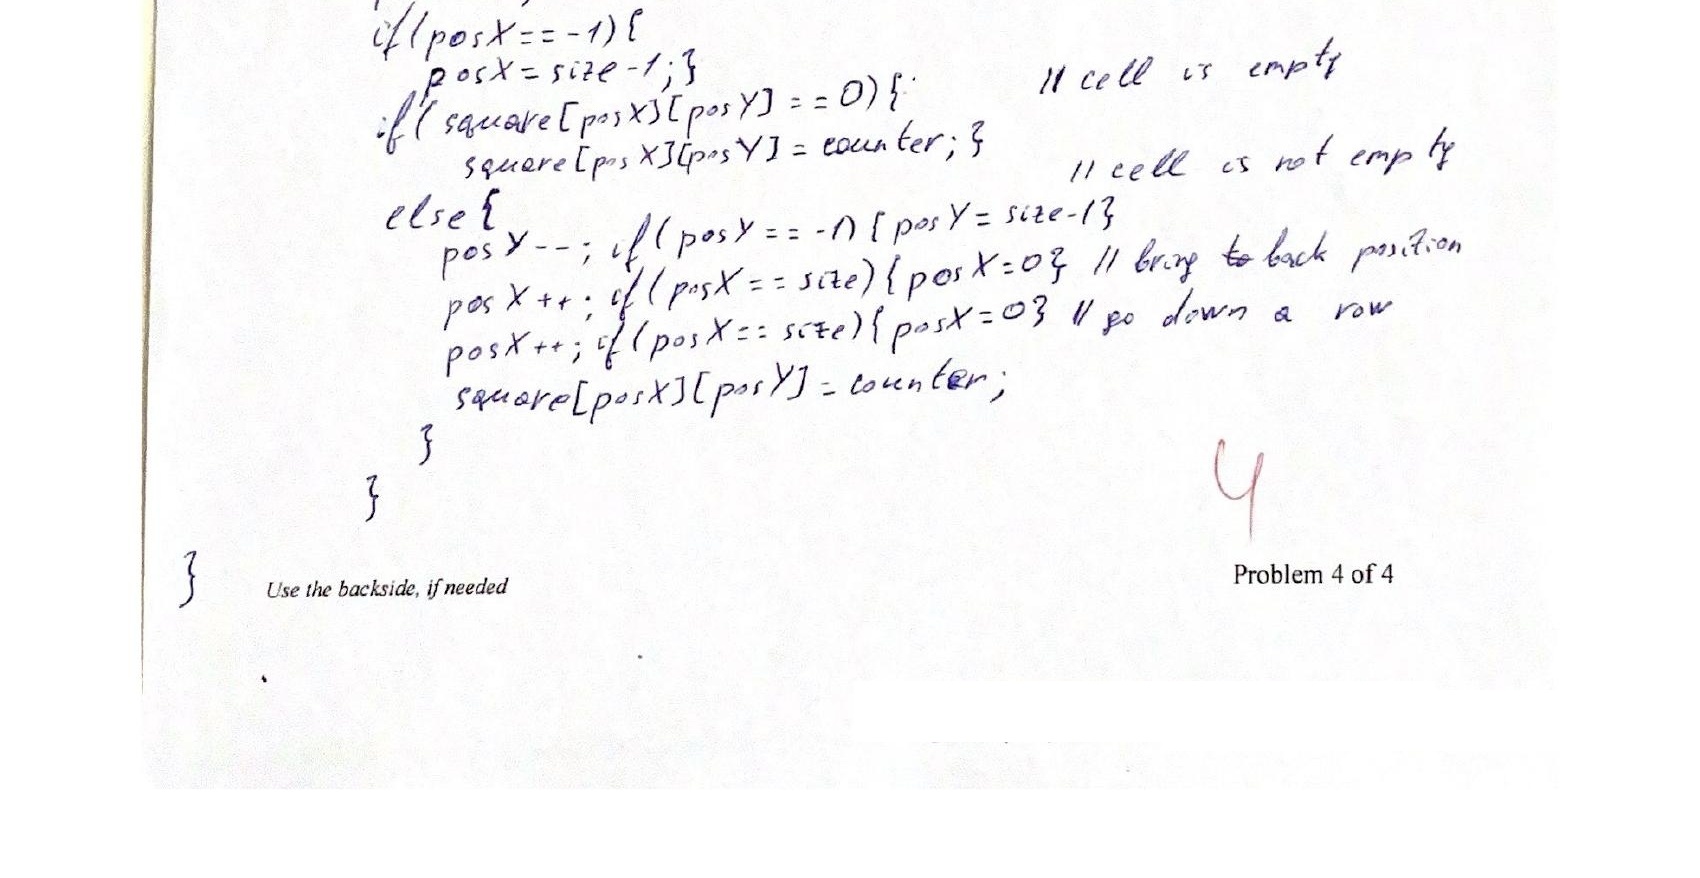 if(posX==-1){
posX=size-1;}
if(square[posX][posY]==0){ // cell is empty
square[posX][posY]=counter;}
else{ // cell is not empty
posY--; if(posY==-1){posY=size-1}
posX++; if(posX==size){posX=0} // bring to back position
posX++; if(posX==size){posX=0} // go down a row
square[posX][posY]=counter;
}
}
4
}
Use the backside, if needed
Problem 4 of 4